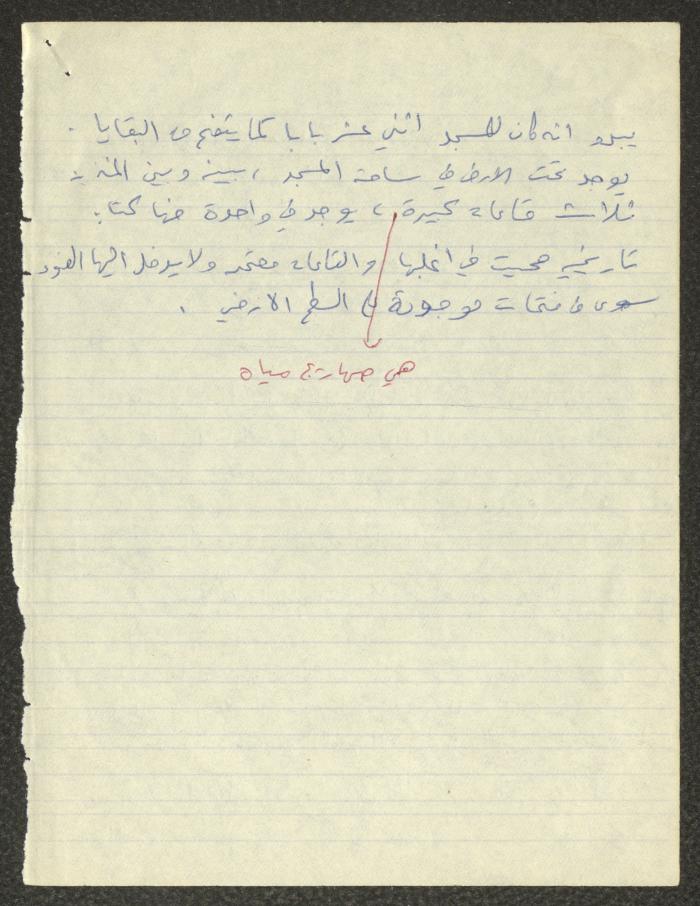 يبدو انه كان للمسجد اثني عشر بابا كما يتضح من البقايا .
يوجد تحت الارض في ساحة المسجد ، بينه وبين المئذنة
ثلاث قاعات كبيرة ، يوجد في واحدة منها كتابة
تاريخية محيت في اغلبها والقاعات معتمة ولا يدخل اليها الضوء
سوى من فتحات موجودة على السطح الارضي .
هي صهاريج مياه